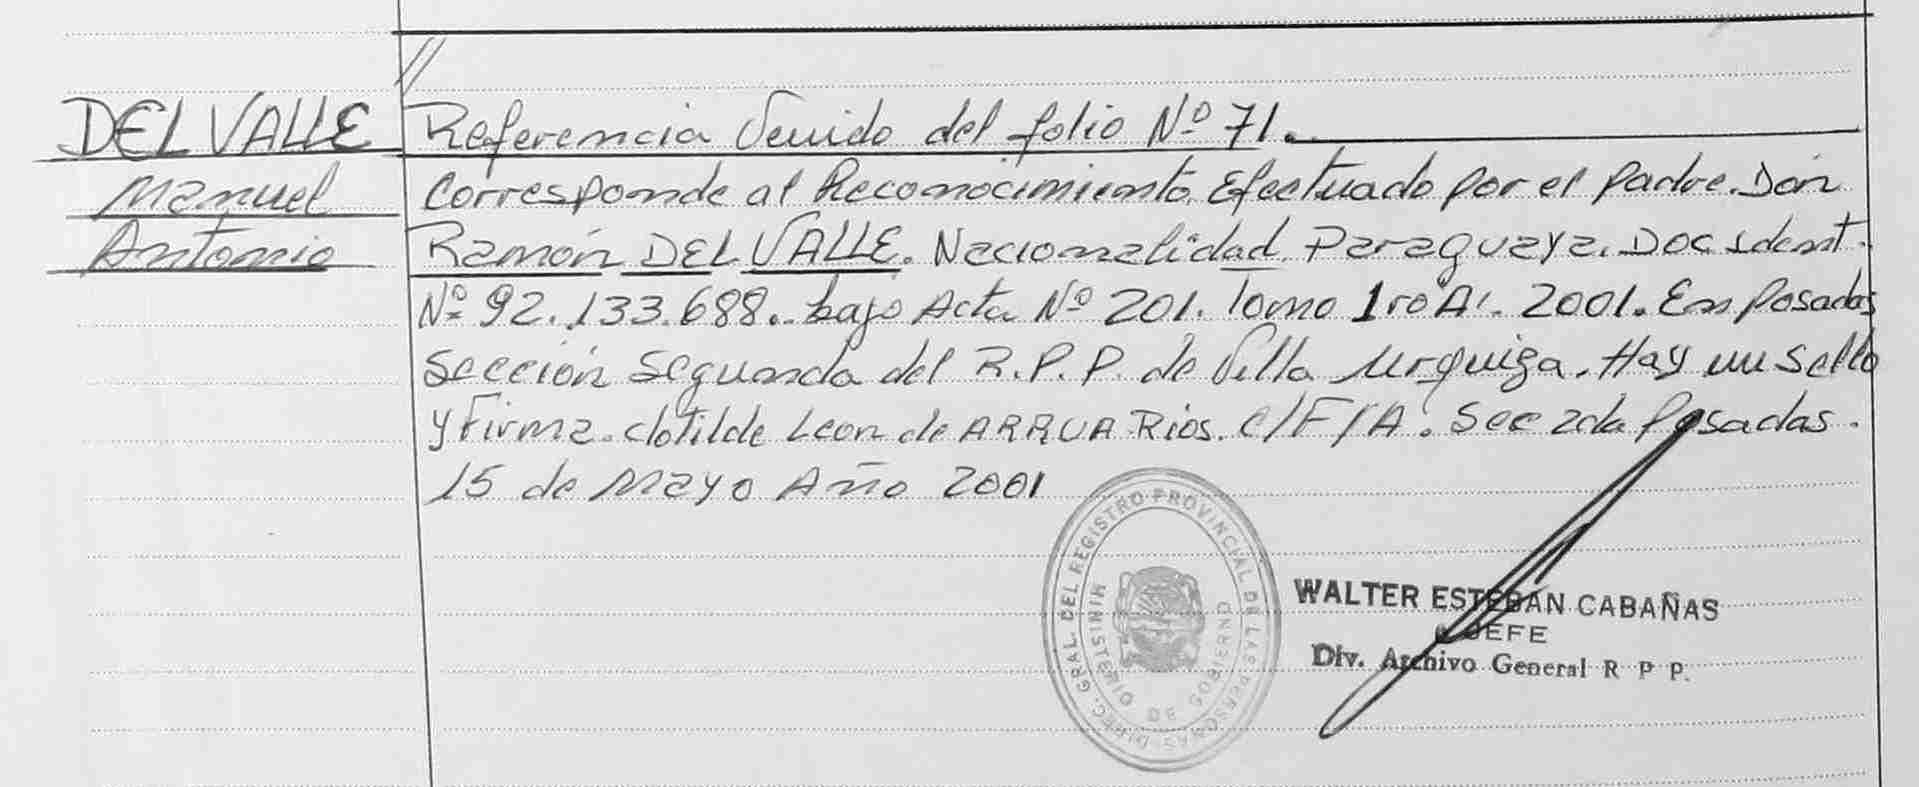 //
DEL VALLE Referencia Venido del folio Nº 71.
Manuel Corresponde al Reconocimiento Efectuado por el padre. Don
Antonio Ramón DEL VALLE. Nacionalidad Paraguaya. Doc ident.
Nº 92.133.688. bajo Acta Nº 201. Tomo 1ro A'. 2001. En Posadas
Sección Segunda del R.P.P. de Villa Urquiza. Hay un Sello
y Firma. Clotilde Leon de ARRUA Rios. C/F/A. Sec 2da Posadas.
15 de Mayo Año 2001
DIREC. GRAL. DEL REGISTRO PROVINCIAL DE LAS PERSONAS
MINISTERIO DE GOBIERNO
WALTER ESTEBAN CABAÑAS
JEFE
Div. Archivo General R P P.